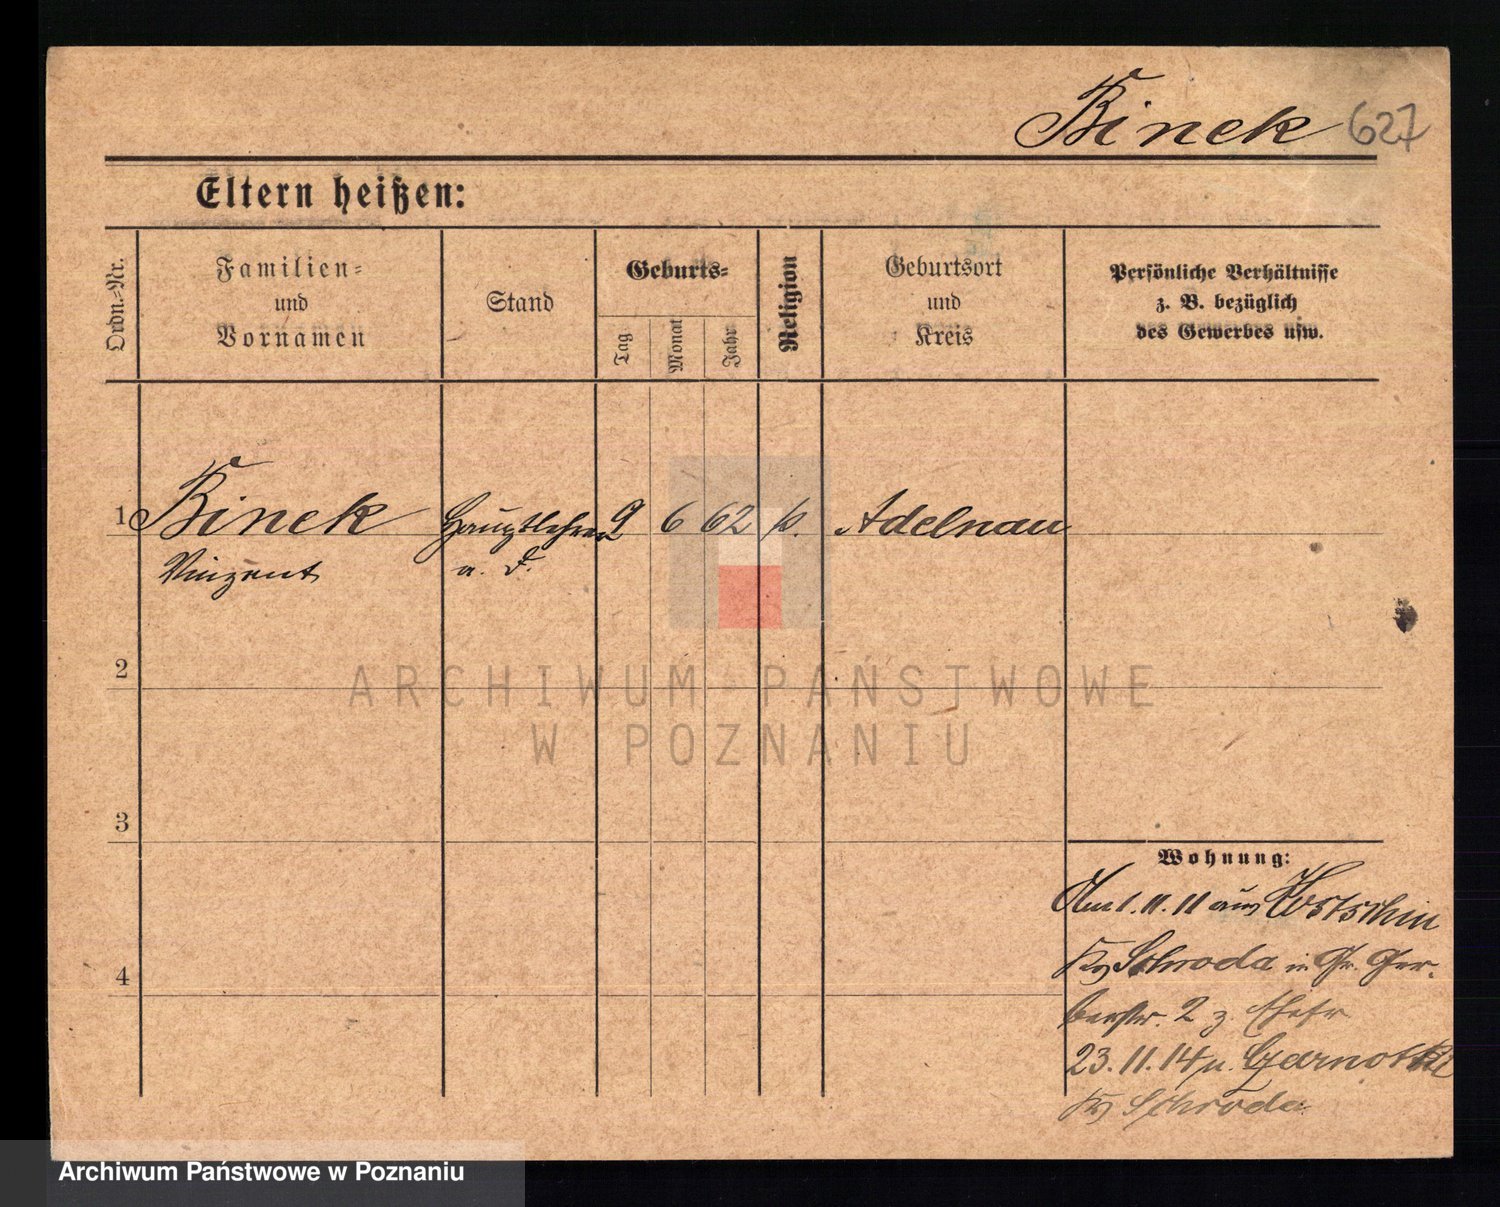 Binek 627
Eltern heißen:
Ordn.-Nr.
Familien-
und
Vornamen
Stand
Geburts-
Tag
Monat
Jahr
Religion
Geburtsort
und
Kreis
Persönliche Verhältnisse
z. B. bezüglich
des Gewerbes usw.
1 Binek Hauptlehrer 9 6 62 k. Adelnau
Vinzent a. D.
2
3
4
Wohnung:
1.11.11 aus
Schroda in Gr. Ger-
berstr. 2 z. Ehefr
23.11.14 n.
Schroda
ARCHIWUM PAŃSTWOWE
W POZNANIU
Archiwum Państwowe w Poznaniu